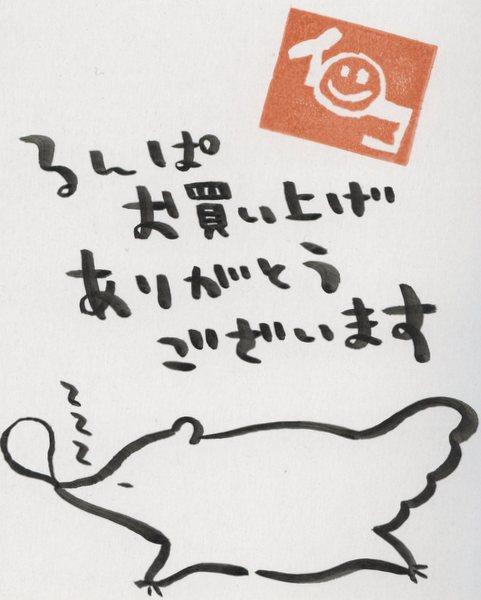 るんぱ
お買い上げ
ありがとう
ございます
zzz